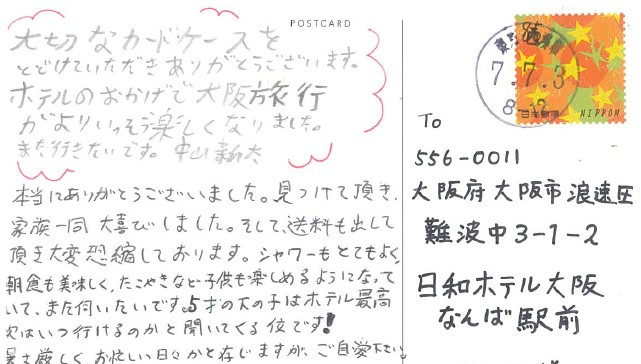 POSTCARD
大切なカードケースを
とどけていただきありがとうございます。
ホテルのおかげで大阪旅行
がよりいっそう楽しくなりました。
また行きたいです。中山
本当にありがとうございました。見つけて頂き、
家族一同大喜びしました。そして、送料も出して
頂き大変恐縮しております。シャワーもとてもよく、
朝食も美味しく、たこやきなど子供も楽しめるようになって
いて、また伺いたいです。5才の下の子はホテル最高
次はいつ行けるのかと聞いてくる位です!
暑さ厳しく、お忙しい日々かと存じますが、ご自愛下さい。
7.7.3
8-12
日本郵便
NIPPON
To
556-0011
大阪府大阪市浪速区
難波中3-1-2
日和ホテル大阪
なんば駅前